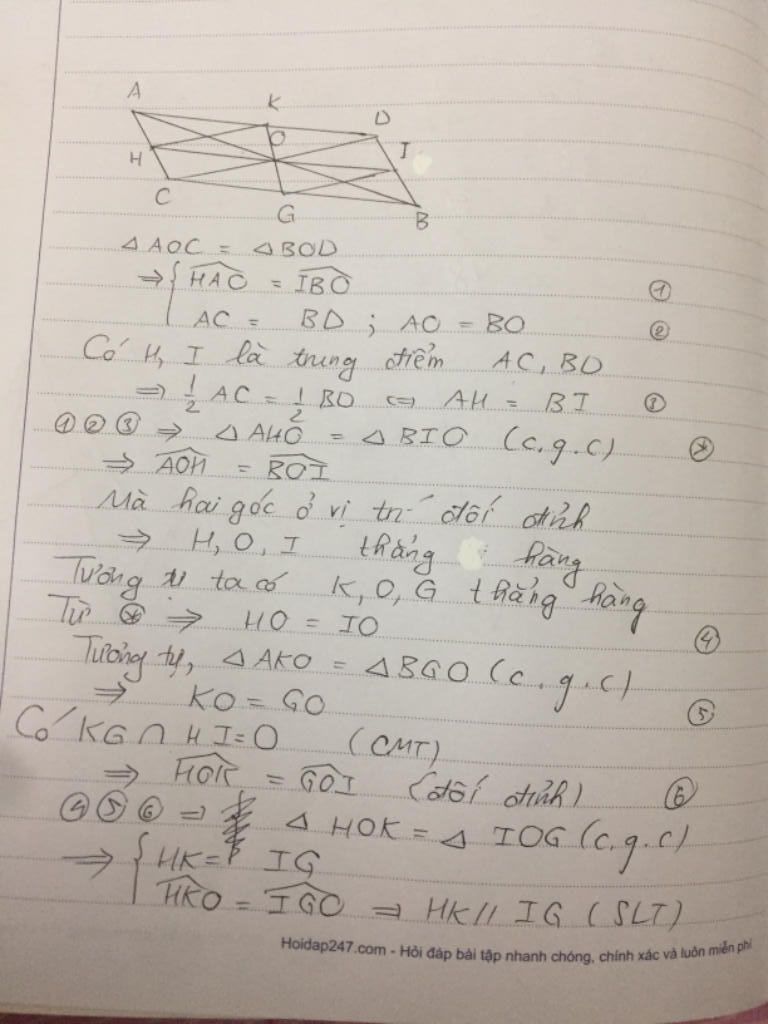 A
K
D
O
H
I
C
G
B
△AOC = △BOD
⇒ { \widehat{HAO} = \widehat{IBO} ①
AC = BD ; AO = BO ②
Có H, I là trung điểm AC, BD
⇒ 1/2 AC = 1/2 BD ⇔ AH = BI ③
①②③ ⇒ △AHO = △BIO (c.g.c) (*)
⇒ \widehat{AOH} = \widehat{BOI}
Mà hai góc ở vị trí đối đỉnh
⇒ H, O, I thẳng hàng
Tương tự ta có K, O, G thẳng hàng
Từ (*) ⇒ HO = IO ④
Tương tự, △AKO = △BGO (c.g.c)
⇒ KO = GO ⑤
Có KG ∩ HI = O (CMT)
⇒ \widehat{HOK} = \widehat{GOI} (đối đỉnh) ⑥
④⑤⑥ ⇒ △HOK = △IOG (c.g.c)
⇒ { HK = IG
\widehat{HKO} = \widehat{IGO} ⇒ HK // IG (SLT)
Hoidap247.com - Hỏi đáp bài tập nhanh chóng, chính xác và luôn miễn phí